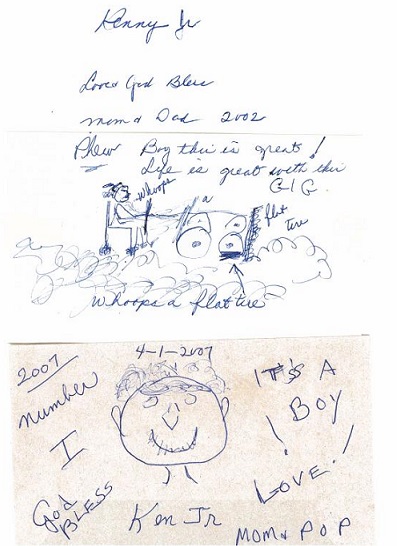 Kenny Jr
Love & God Bless
mom & Dad 2002
Phew Boy this is great!
Life is great with this
GIG.
whoops
a
flat
tire
Whoops a flat tire
2007
4-1-2007
number
I
God
BLESS
IT'S A
BOY
!
LOVE!
Ken Jr
MOM & POP